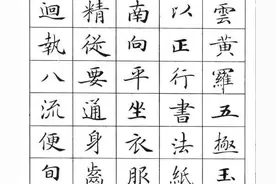 雲黃羅五極玉
以正行書法紙
南向平坐衣服
精從要通身齒
迴執八流便旬